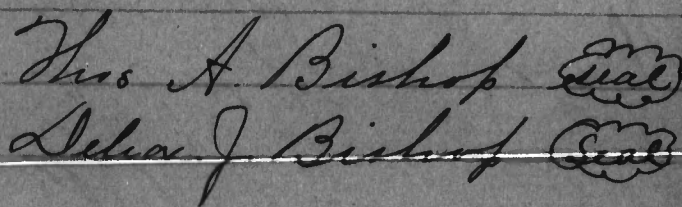 Thos A. Bishop seal
Delia J Bishop Seal